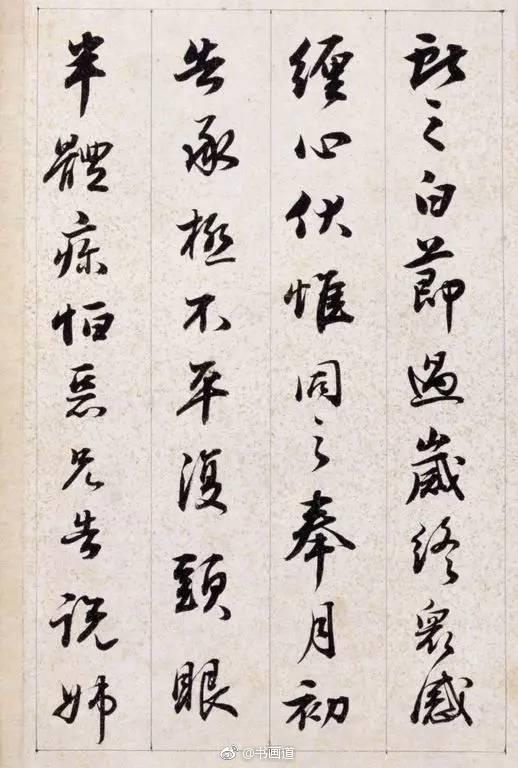 獻之白節過歲終衆感
纏心伏惟同之奉月初
告承極不平復頭眼
半體疼怕惡兄告說姊
@书画道